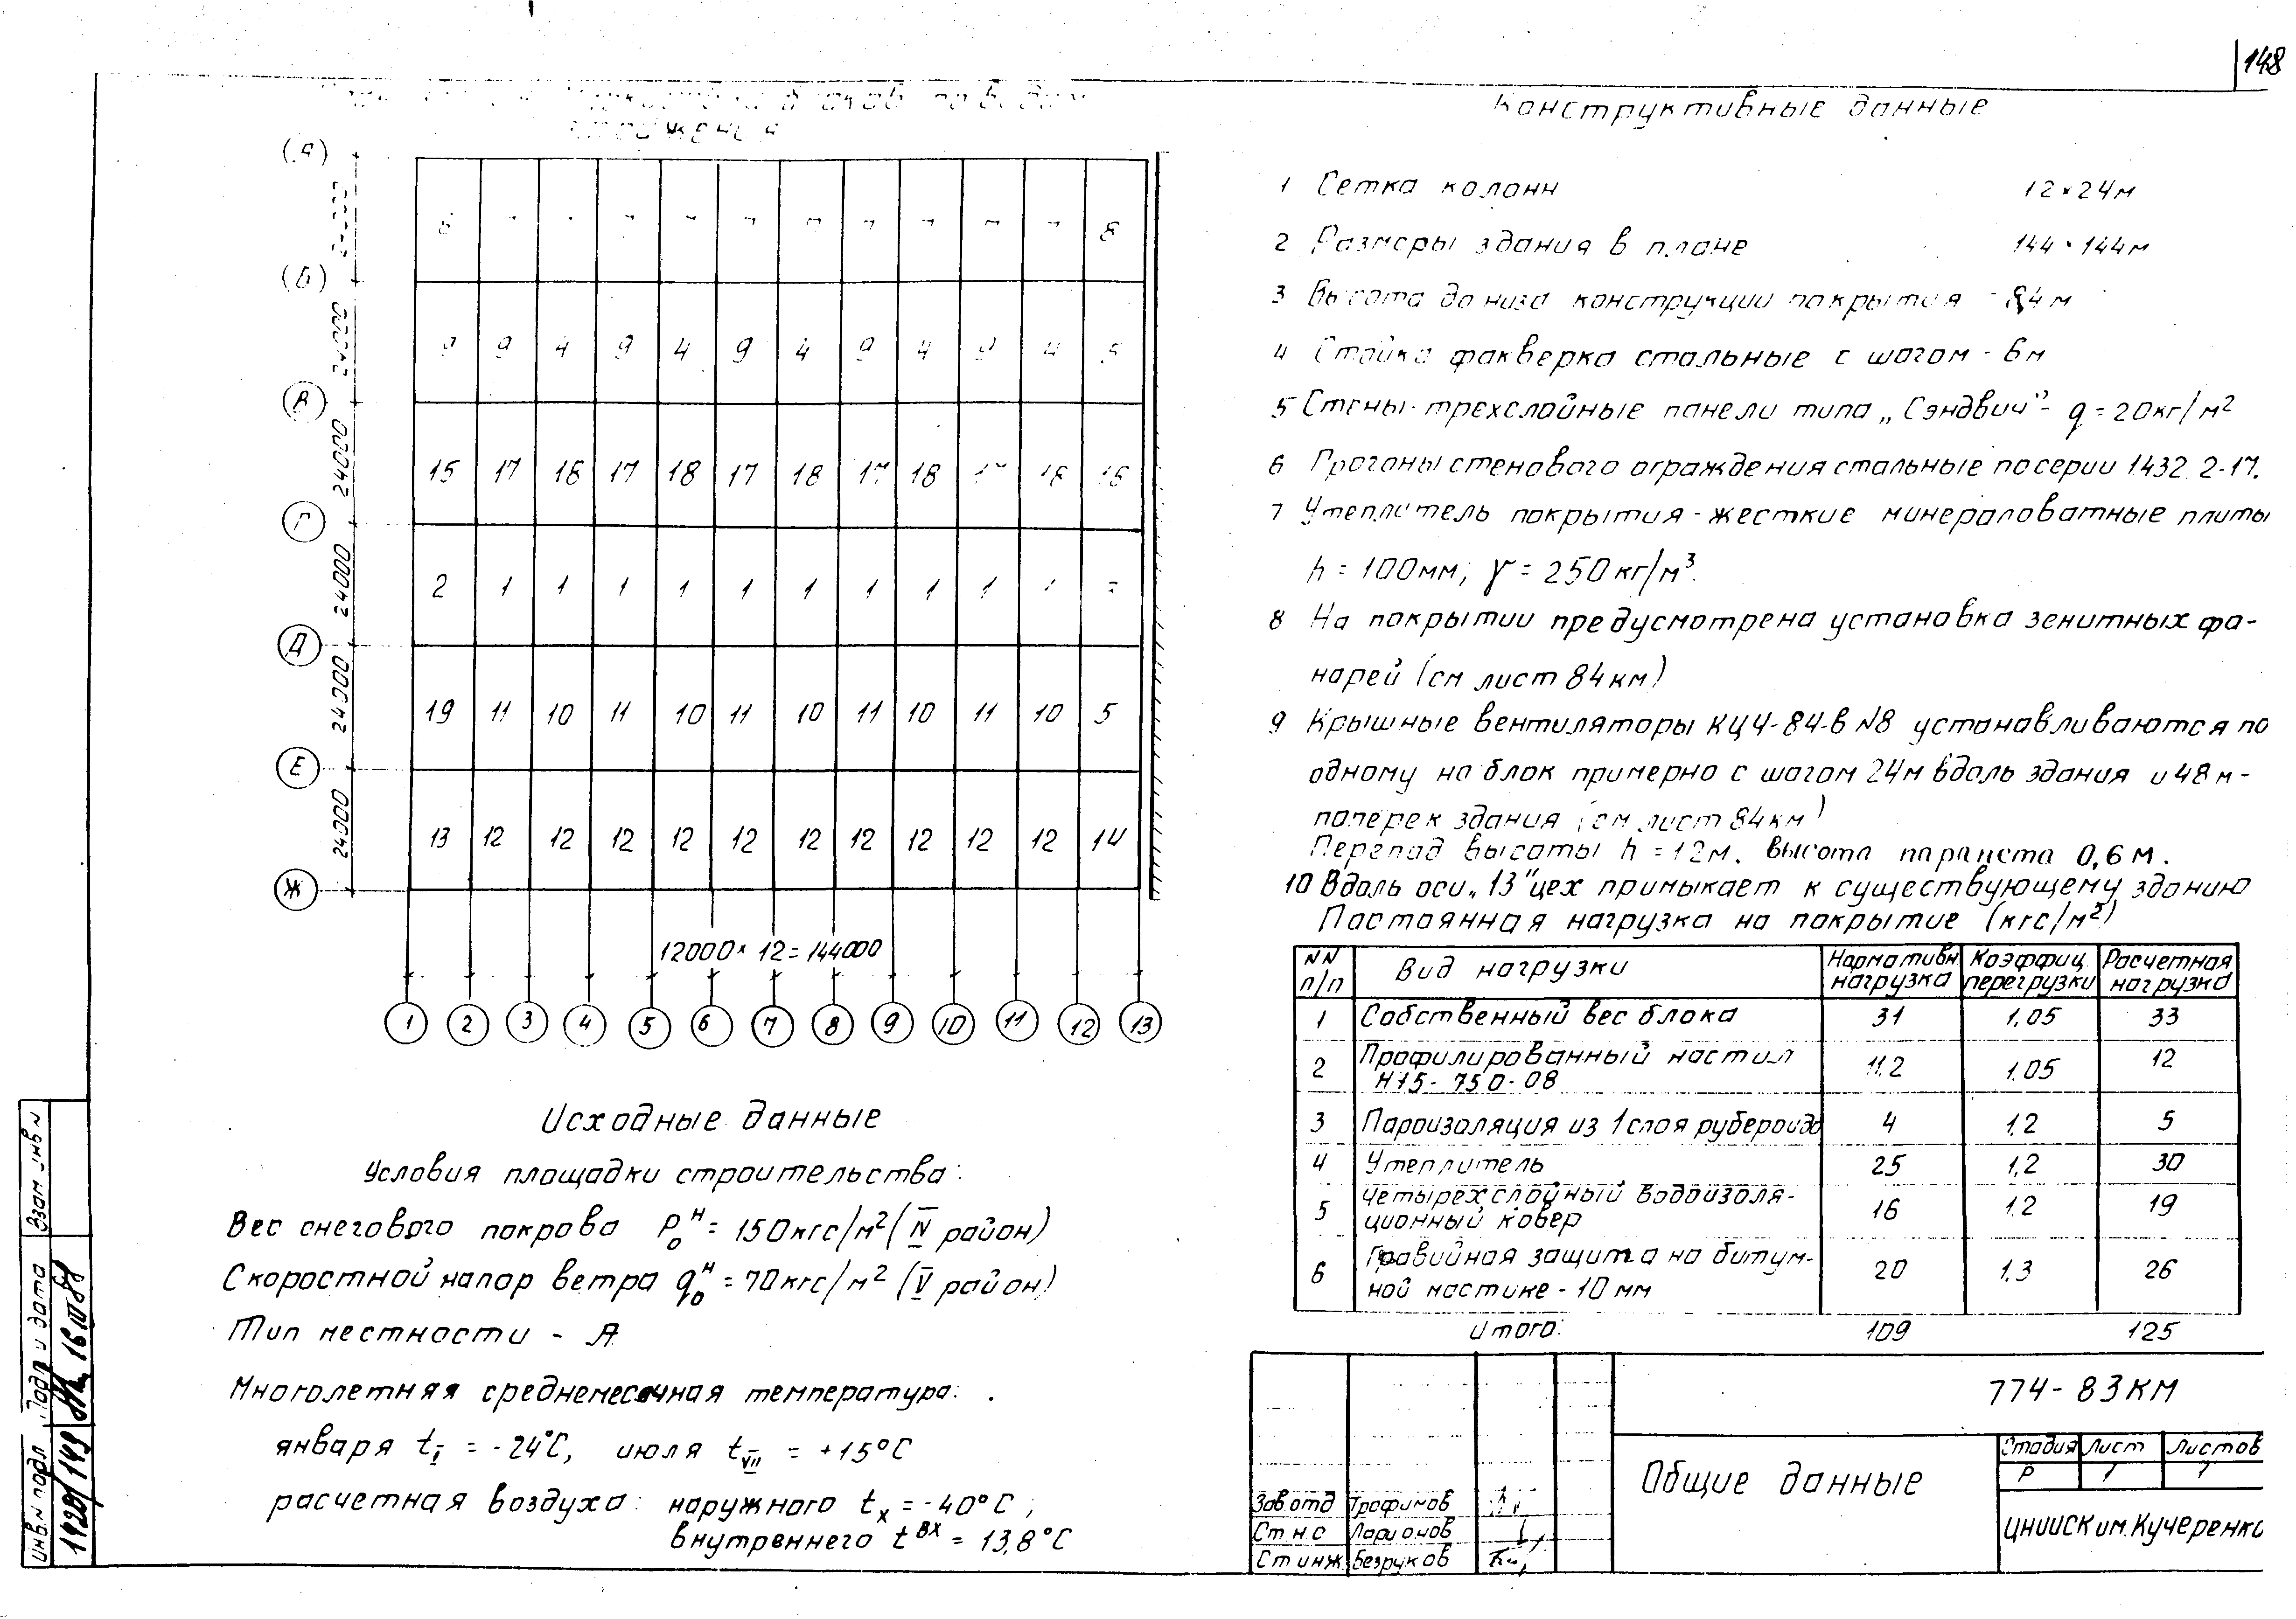 148
(А)
(Б)
24000
В
24000
Г
24000
Д
24000
Е
24000
Ж
8
9 9 4 9 4 9 4 9 4 9 4 5
15 17 18 17 18 17 18 17 18 17 18 16
2 1 1 1 1 1 1 1 1 1 1
19 11 10 11 10 11 10 11 10 11 10 5
13 12 12 12 12 12 12 12 12 12 12 14
12000×12=144000
1 2 3 4 5 6 7 8 9 10 11 12 13
Исходные данные
Условия площадки строительства:
Вес снегового покрова P₀ᴴ = 150 кгс/м² (IV район)
Скоростной напор ветра q₀ᴴ = 70 кгс/м² (V район)
Тип местности - А
Многолетняя среднемесячная температура:
января t_I = -24°C, июля t_VII = +15°C
расчетная воздуха: наружного t_х = -40°C;
внутреннего t^вх = 13,8°C
Конструктивные данные
1 Сетка колонн 12×24м
2 Размеры здания в плане 144×144м
3 Высота до низа конструкции покрытия - 8,4м
4 Стойка фахверка стальные с шагом - 6м
5 Стены-трехслойные панели типа „Сэндвич" - q = 20кг/м²
6 Прогоны стенового ограждения стальные по серии 1432.2-17.
7 Утеплитель покрытия - жесткие минераловатные плиты
h = 100мм; γ = 250кг/м³.
8 На покрытии предусмотрена установка зенитных фо-
нарей (см лист 84км)
9 Крышные вентиляторы КЦ4-84-в N8 устанавливаются по
одному на блок примерно с шагом 24м вдоль здания и 48м-
поперек здания (см лист 84км)
Перепад высоты h = 12м. высота парапета 0,6м.
10 Вдоль оси „13" цех примыкает к существующему зданию
Постоянная нагрузка на покрытие (кгс/м²)
NN п/п Вид нагрузки Нормативн. нагрузка Коэффиц. перегрузки Расчетная нагрузка
1 Собственный вес блока 31 1,05 33
2 Профилированный настил 11.2 1.05 12
Н75-750-08
3 Пароизоляция из 1 слоя рубероида 4 1,2 5
4 Утеплитель 25 1,2 30
5 Четырехслойный водоизоля- 16 1.2 19
ционный ковер
6 Гравийная защита на битум- 20 1.3 26
ной мастике - 10 мм
Итого: 109 125
774-83КМ
Общие данные
Стадия Лист Листов
Р 1 1
ЦНИИСК им. Кучеренко
Зав.отд Трофимов
Ст.н.с. Ларионов
Ст инж. Безруков
Взам инв N
Подп и дата
16 III 84
Инв.N подл.